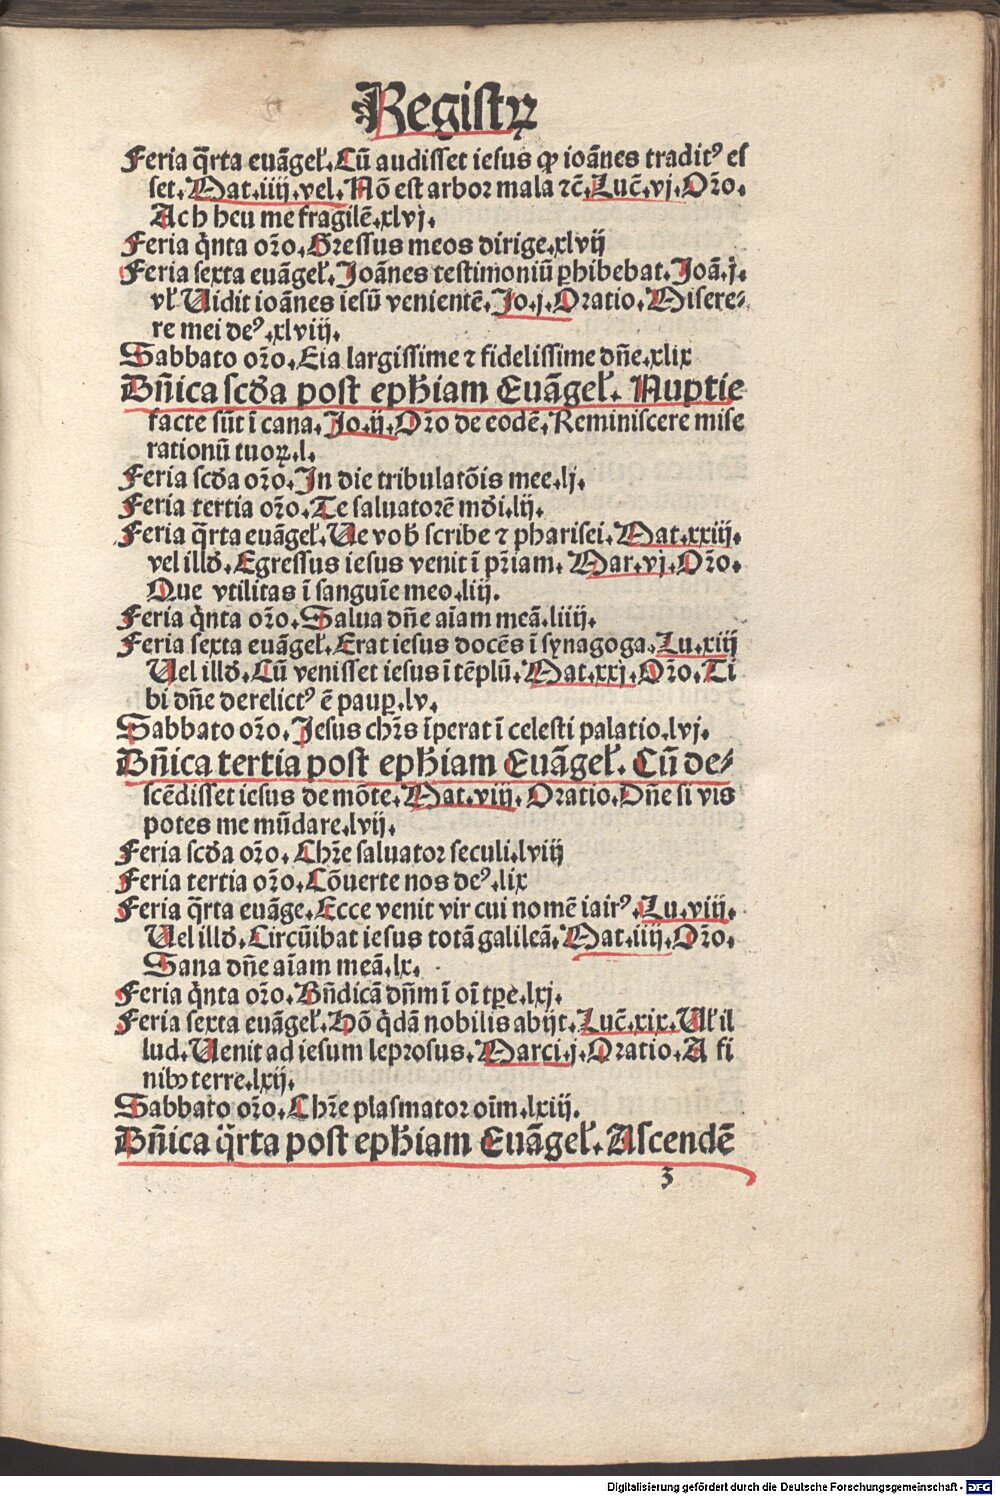 Registꝝ
Feria q̄rta euāgeƚ. Cū audisset iesus ꝙ ioānes traditꝰ es
set. Mat. iiij. vel. Nō est arbor mala ⁊c̄. Luc̄. vj. Or̄o.
Ach heu me fragilē. xlvj.
Feria q̇nta or̄o. Gressus meos dirige. xlvij
Feria sexta euāgeƚ. Joānes testimoniū ꝑhibebat. Joā. j.
vƚ Uidit ioānes iesū venientē. Jo. j. Oratio. Misere⸗
re mei deꝰ. xlviij.
Sabbato or̄o. Eia largissime ⁊ fidelissime dn̄e. xlix
Dn̄ica scd̄a post ephīam Euāgeƚ. Nuptie
facte sūt ī cana. Jo. ij. Or̄o de eodē. Reminiscere mise
rationū tuoꝝ. l.
Feria scd̄a or̄o. In die tribulatōis mee. lj.
Feria tertia or̄o. Te saluatorē mūdi. lij.
Feria q̄rta euāgeƚ. Ue vob̄ scribe ⁊ pharisei. Mat. xxiij.
vel illd̄. Egressus iesus venit ī pr̄iam. Mar. vj. Or̄o.
Que vtilitas ī sanguīe meo. liij.
Feria q̇nta or̄o. Salua dn̄e aīam meā. liiij.
Feria sexta euāgeƚ. Erat iesus docēs ī synagoga. Lu. xiij
Uel illd̄. Cū venisset iesus ī tēplū. Mat. xxj. Or̄o. Ti
bi dn̄e derelictꝰ ē pauꝑ. lv.
Sabbato or̄o. Jesus chr̄s īperat ī celesti palatio. lvj.
Dn̄ica tertia post ephīam Euāgeƚ. Cū de⸗
scēdisset iesus de mōte. Mat. viij. Oratio. Dn̄e si vis
potes me mūdare. lvij.
Feria scd̄a or̄o. Chr̄e saluator seculi. lviij
Feria tertia or̄o. Cōuerte nos deꝰ. lix
Feria q̄rta euāge. Ecce venit vir cui nomē iairꝰ. Lu. viij.
Uel illd̄. Circūibat iesus totā galileā. Mat. iiij. Or̄o.
Sana dn̄e aīam meā. lx.
Feria q̇nta or̄o. Bn̄dicā dn̄m ī oī tꝑe. lxj.
Feria sexta euāgeƚ. Hō q̇dā nobilis abijt. Luc̄. xix. Uƚ il
lud. Uenit ad iesum leprosus. Marci. j. Oratio. A fi
nibꝰ terre. lxij.
Sabbato or̄o. Chr̄e plasmator oīm. lxiij.
Dn̄ica q̄rta post ephīam Euāgeƚ. Ascendē
3
Digitalisierung gefördert durch die Deutsche Forschungsgemeinschaft - DFG